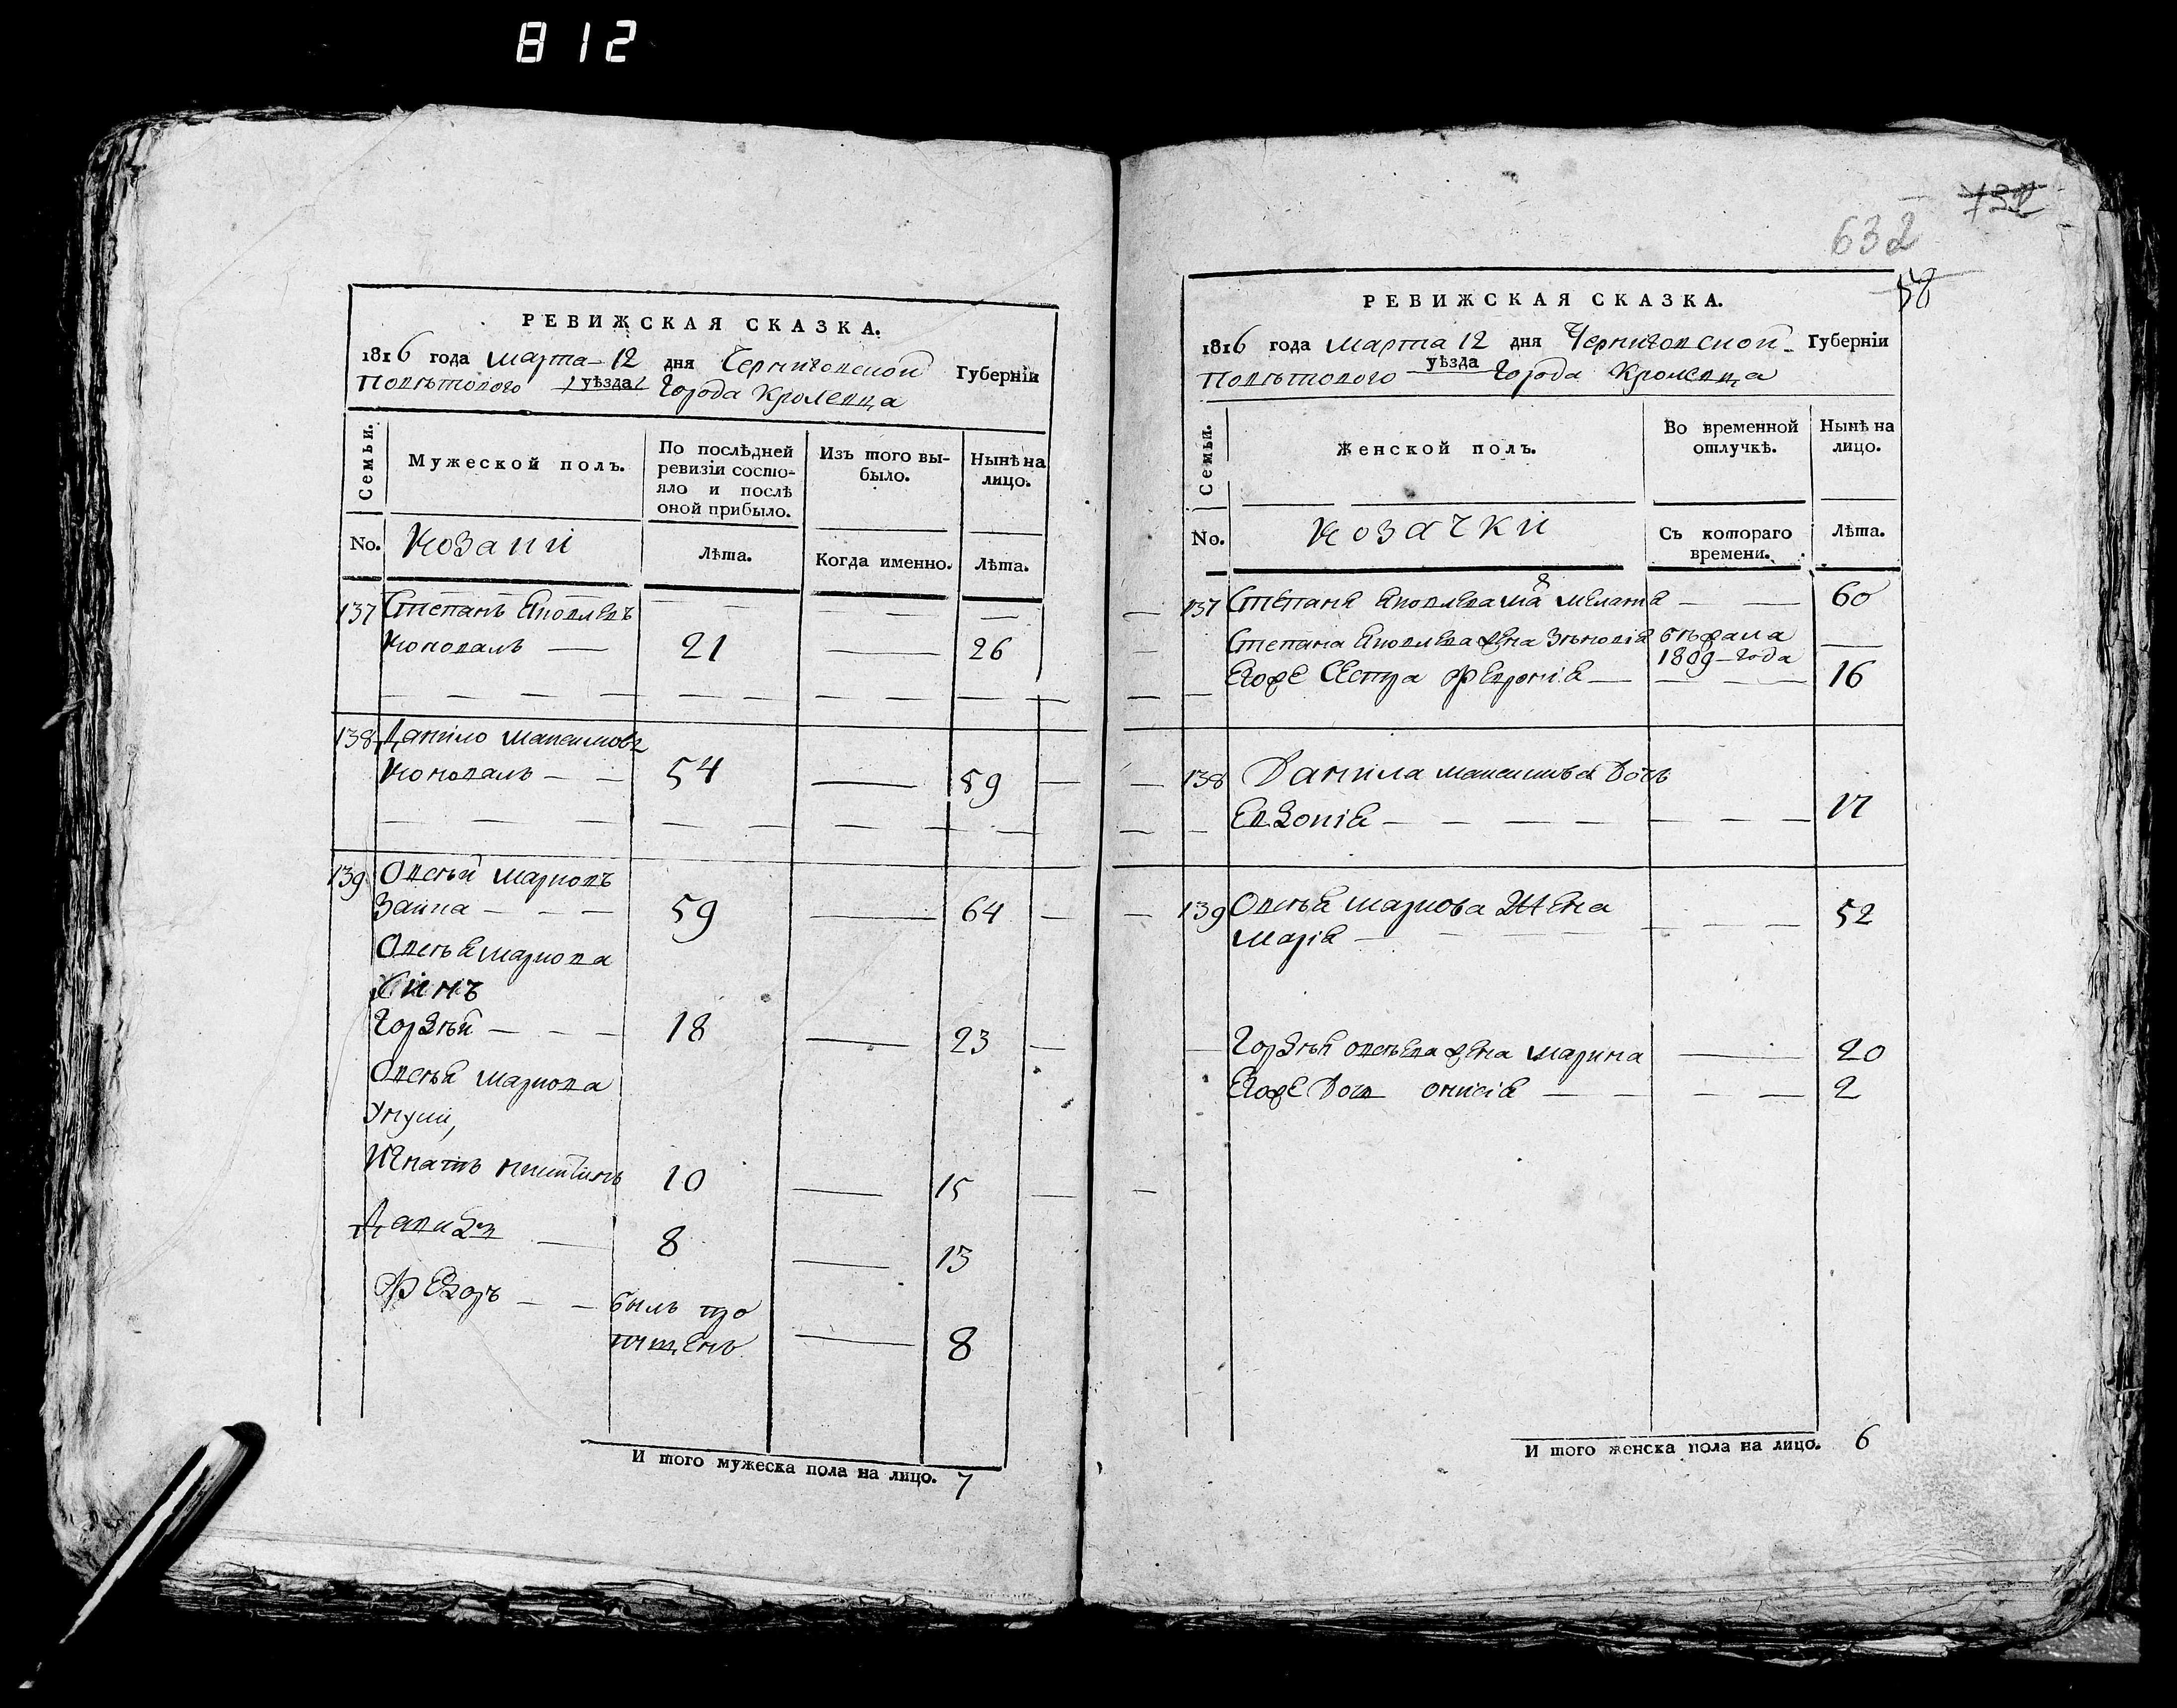 812
РЕВИЖСКАЯ СКАЗКА.
1816 года марта 12 дня Черниговской Губерніи
Поветового уѣзда Города Кролевца
Семьи.
Мужеской полъ.
По послѣдней ревизіи состояло и послѣ оной прибыло.
Изъ того выбыло.
Нынѣ на лицо.
No.
Козаки
Лѣта.
Когда именно.
Лѣта.
137 Степанъ Яковлевъ
Коновалъ — 21 — 26
138 Данило Максимовъ
Коновалъ — — 54 — 59
139 Овсѣй Марковъ
Заика — — — 59 — 64
Овсѣя Маркова
Синъ
Гордѣй — — — 18 — 23
Овсѣя Маркова
Унуки,
Игнатъ 10 — 15
Давидъ — 8 — 13
Федоръ — — былъ про
пущенъ — 8
И того мужеска пола на лицо. 7
732
632
58
РЕВИЖСКАЯ СКАЗКА.
1816 года марта 12 дня Черниговской Губерніи
Поветового уѣзда Города Кролевца
Семьи.
Женской полъ.
Во временной отлучкѣ.
Нынѣ на лицо.
No.
Козачки
Съ котораго времени.
Лѣта.
137 Степана Яковлева Меланія — — 60
Степана Яковлева жена Зѣновія бѣжала 1809 года —
Егоже Сестра Февронія — — — 16
138 Данила Максимова Дочь
Евдокія — — — — — 17
139 Овсѣя Маркова Жена
Марія — — — — 52
Гордѣя Овсѣева жена Марина — 20
Егоже Дочь Онисія — — — — 2
И того женска пола на лицо. 6